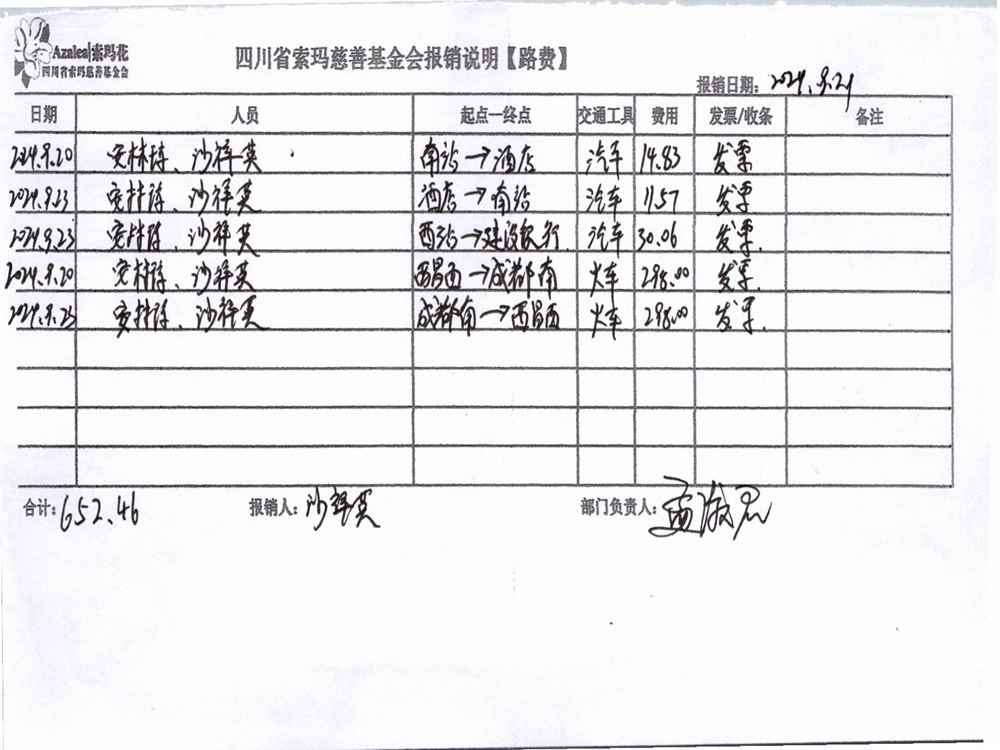 Azalea|索玛花
四川省索玛慈善基金会
四川省索玛慈善基金会报销说明【路费】
报销日期: 2024.9.29
日期 人员 起点一终点 交通工具 费用 发票/收条 备注
2024.9.20 沙祥英 南站→酒店 汽车 14.83 发票
2024.9.23 沙祥英 酒店→南站 汽车 11.57 发票
2024.9.23 沙祥英 西站→建设银行 汽车 30.06 发票
2024.9.20 沙祥英 西昌西→成都南 火车 298.00 发票
2024.9.23 沙祥英 成都南→西昌西 火车 298.00 发票
合计: 652.46 报销人: 沙祥英 部门负责人: